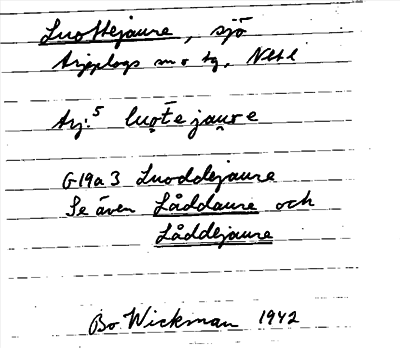 Luottejaure, sjö
Arjeplogs sn o tg, Nbtl
Arj.⁵ luo̭t̄ejau̮re
G19a3 Luoddejaure
Se även Låddaure och
Låddejaure
Bo Wickman 1942